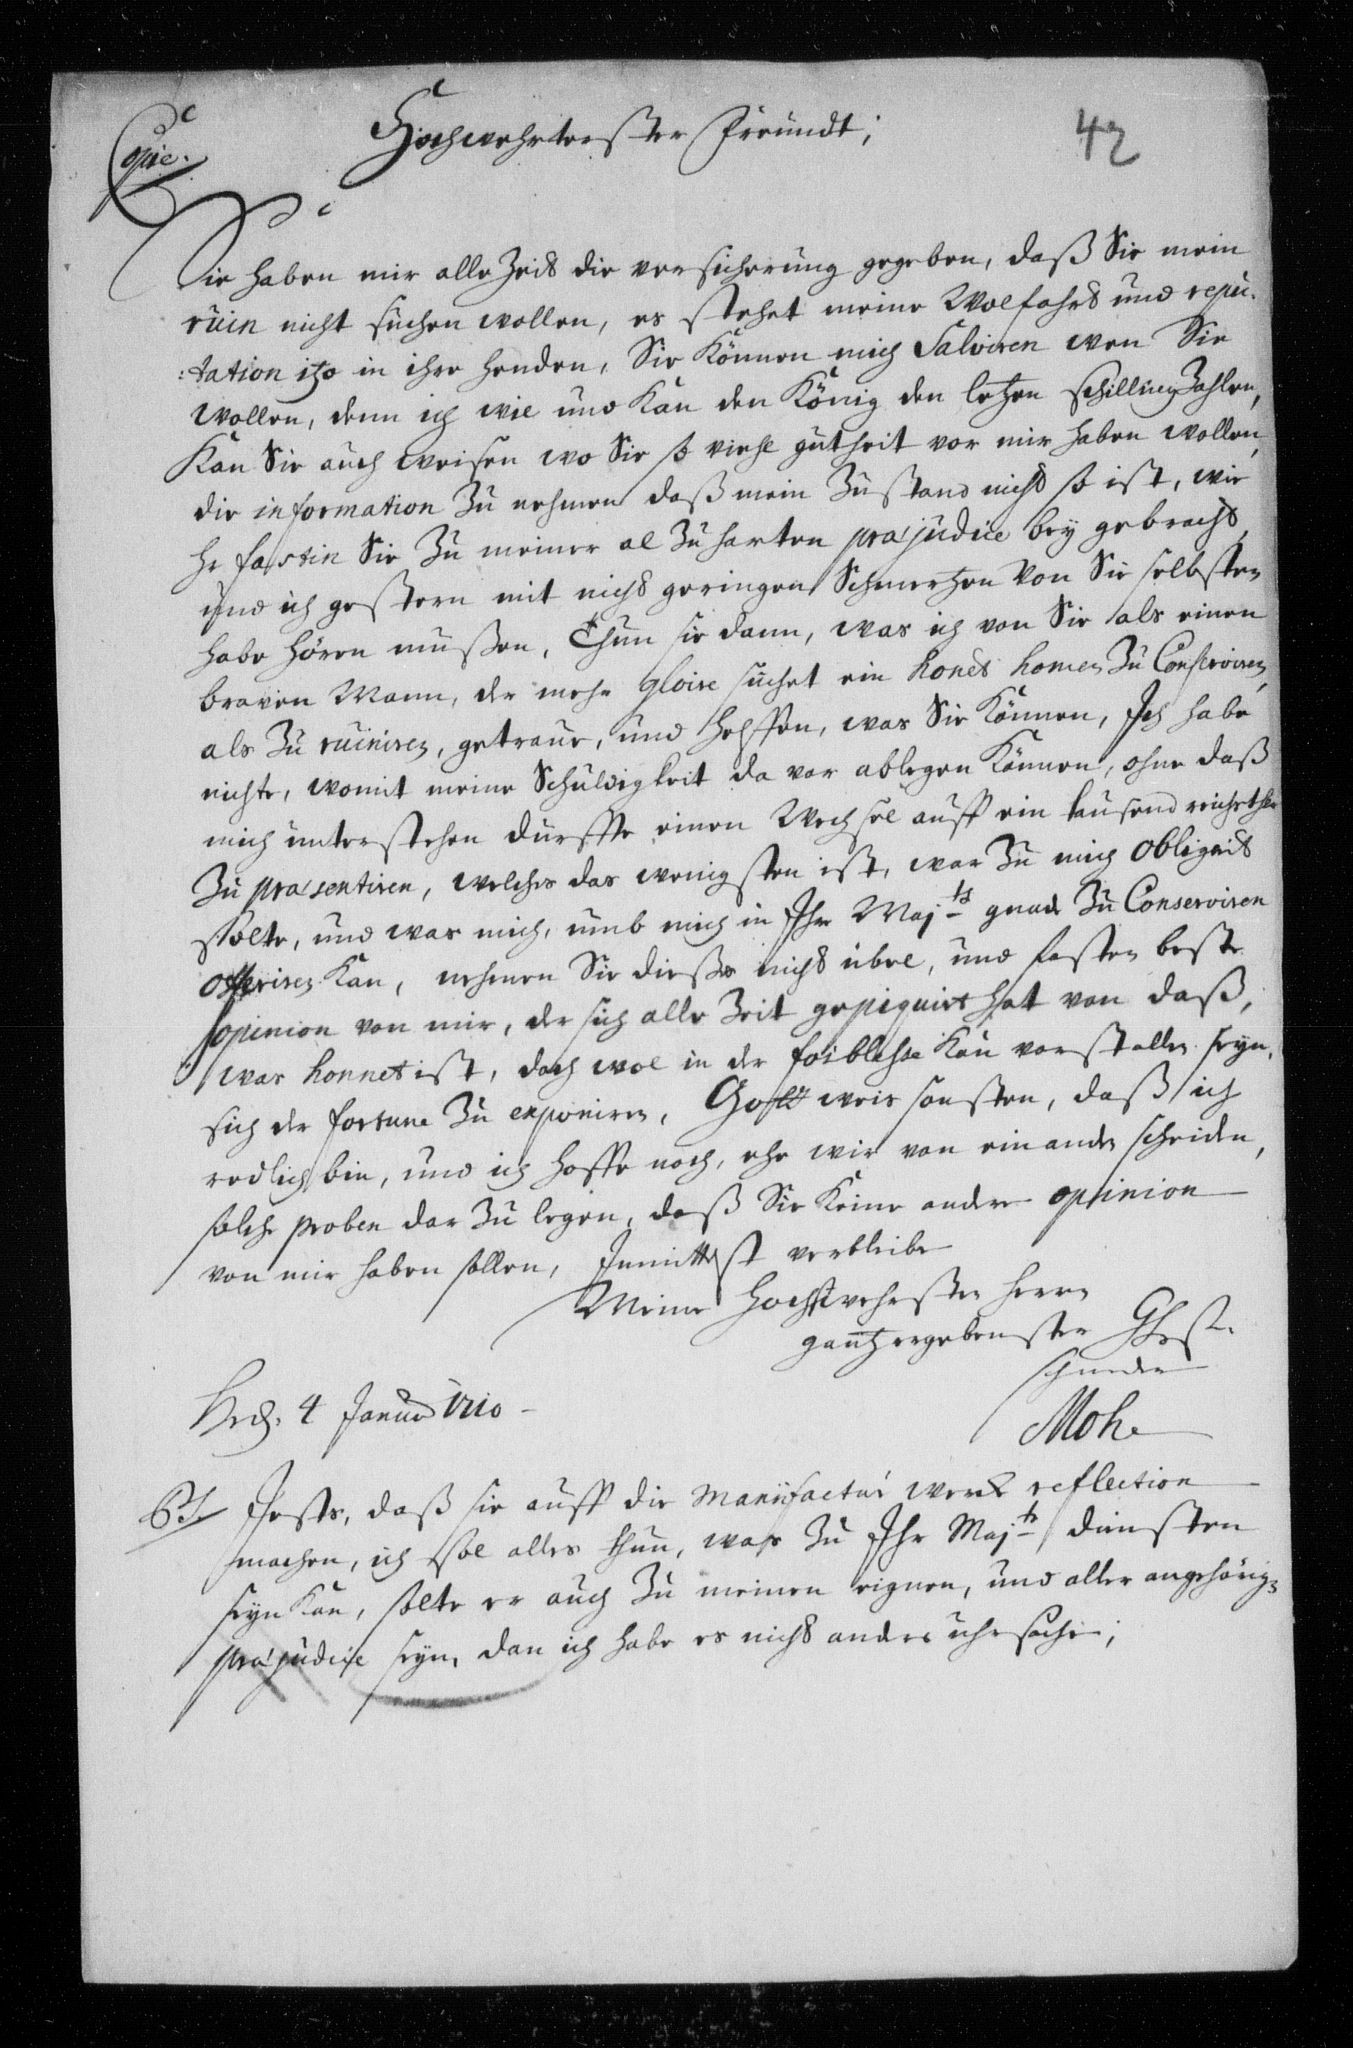 Copie.
Hochwehrtester Freundt;
42
Sie haben mir alle Zeit die versicherung gegeben, daß Sie mein
ruin nicht suchen wollen, es stehet meine Wolfahrt und repu-
:tation itzo in ihre henden, Sie Können mich Salviren wen Sie
wollen, denn ich wil und Kan den König den letzen schilling Zahlen,
Kan Sie auch weisen wo Sie so viehl gutheit vor mir haben wollen,
die information Zu nehmen daß mein Zustand nicht so ist, wie
Hr fastin Sie Zu meiner al Zu harten præjudice bey gebracht,
und ich gestern mit nicht geringen Schmertzen Von Sie selbsten
habe hören mußen, Thun sie dann, was ich von Sie als einen
braven Mann, der mehr gloire suchet ein honet homen Zu Conserviren,
als Zu ruiniren, getraue, und helffen, was Sie Können, Ich habe
nichts, womit meine Schuldigkeit da vor ablegen Können, ohne daß
mich unterstehen durffte einen Wechsel auff ein tausend reichsthlr
Zu præsentiren, welches das wenigsten ist, war Zu mich obligirt
solte, und was mich, umb mich in Ihr Maj^ts gnade Zu Conserviren
offeriren Kan, nehmen Sie dießes nicht übel, und fasten beste
opinion von mir, der sich alle Zeit gepiquirt hat von daß,
was honnet ist, doch wol in der foiblesse Kan verstallen seyn,
sich der fortune Zu exponiren, Gott weis sonsten, daß ich
redlich bin, und ich hoffe noch, ehe wir von einander scheiden,
solche proben dar Zu legen, daß Sie Keine andre opinion
von mir haben sollen, Inmittelst verbleibe
Meines Hochstwehrsten Herrn
gantz ergebenster
4 Januar 1710
Mohr
PS daß sie auff die Manufactur werck reflection
machen, ich sol alles thun, was Zu Ihr Maj^ts diensten
seyn Kan, solte er auch Zu meinen eignen, und aller angehörigen
præjudice seyn, dan ich habe es nicht andre uhrsache;